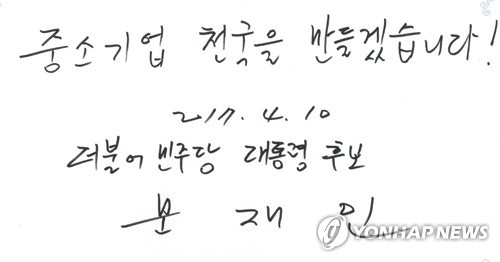 중소기업 천국을 만들겠습니다!
2017. 4. 10
더불어 민주당 대통령 후보
문 재 인
YONHAP NEWS